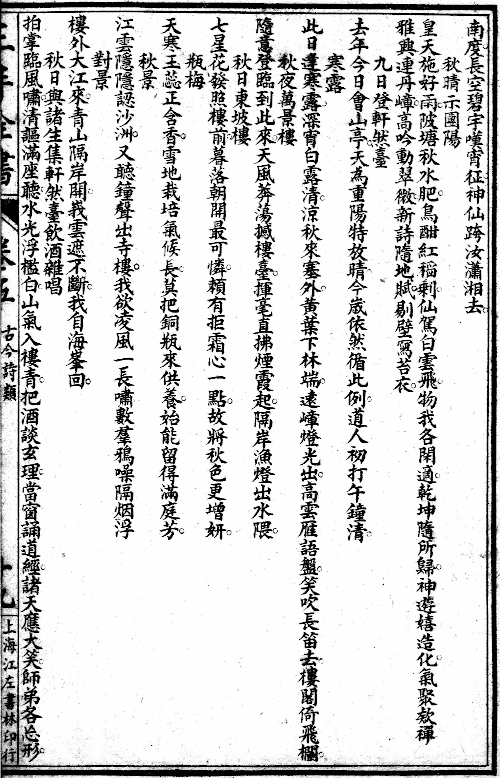 南度長空碧宇嘆宵征神仙跨汝瀟湘去
秋晴示國陽
皇天施好雨陂塘秋水肥鳥酣紅稻剩仙駕白雲飛物我各閑適乾坤隨所歸神遊嬉造化氣聚欬禪
雅興連丹嶂高吟動翠微新詩隨地賦剔壁寫苔衣
九日登軒然臺
去年今日會山亭天為重陽特放晴今歲依然循此例道人初打午鐘清
寒露
此日逢寒露深宵白露清涼秋來塞外黃葉下林端遠嶂燈光出高雲雁語盤笑吹長笛去樓閣倚飛欄
秋夜萬景樓
隨意登臨到此來天風莽蕩撼樓臺揮毫直拂煙霞起隔岸漁燈出水隈
秋日東坡樓
七星花發照樓前暮落朝開最可憐賴有拒霜心一點故將秋色更增妍
瓶梅
天寒玉蕊正含香雪地栽培氣候長莫把銅瓶來供養始能留得滿庭芳
秋景
江雲隱隱認沙洲又聽鐘聲出寺樓我欲凌風一長嘯數羣鴉噪隔烟浮
對景
樓外大江來青山隔岸開莪雲遮不斷我自海峯回
秋日與諸生集軒然臺飲酒雜唱
拍掌臨風嘯清謳滿座聽水光浮檻白山氣入樓青把酒談玄理當窗誦道經諸天應大笑師弟各忘形
三丰全書
卷五
古今詩類
十九
上海江左書林印行